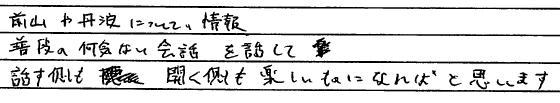 前山や丹波についての情報
普段の何気ない会話を話して
話す側も 聞く側も楽しいものになればと思います